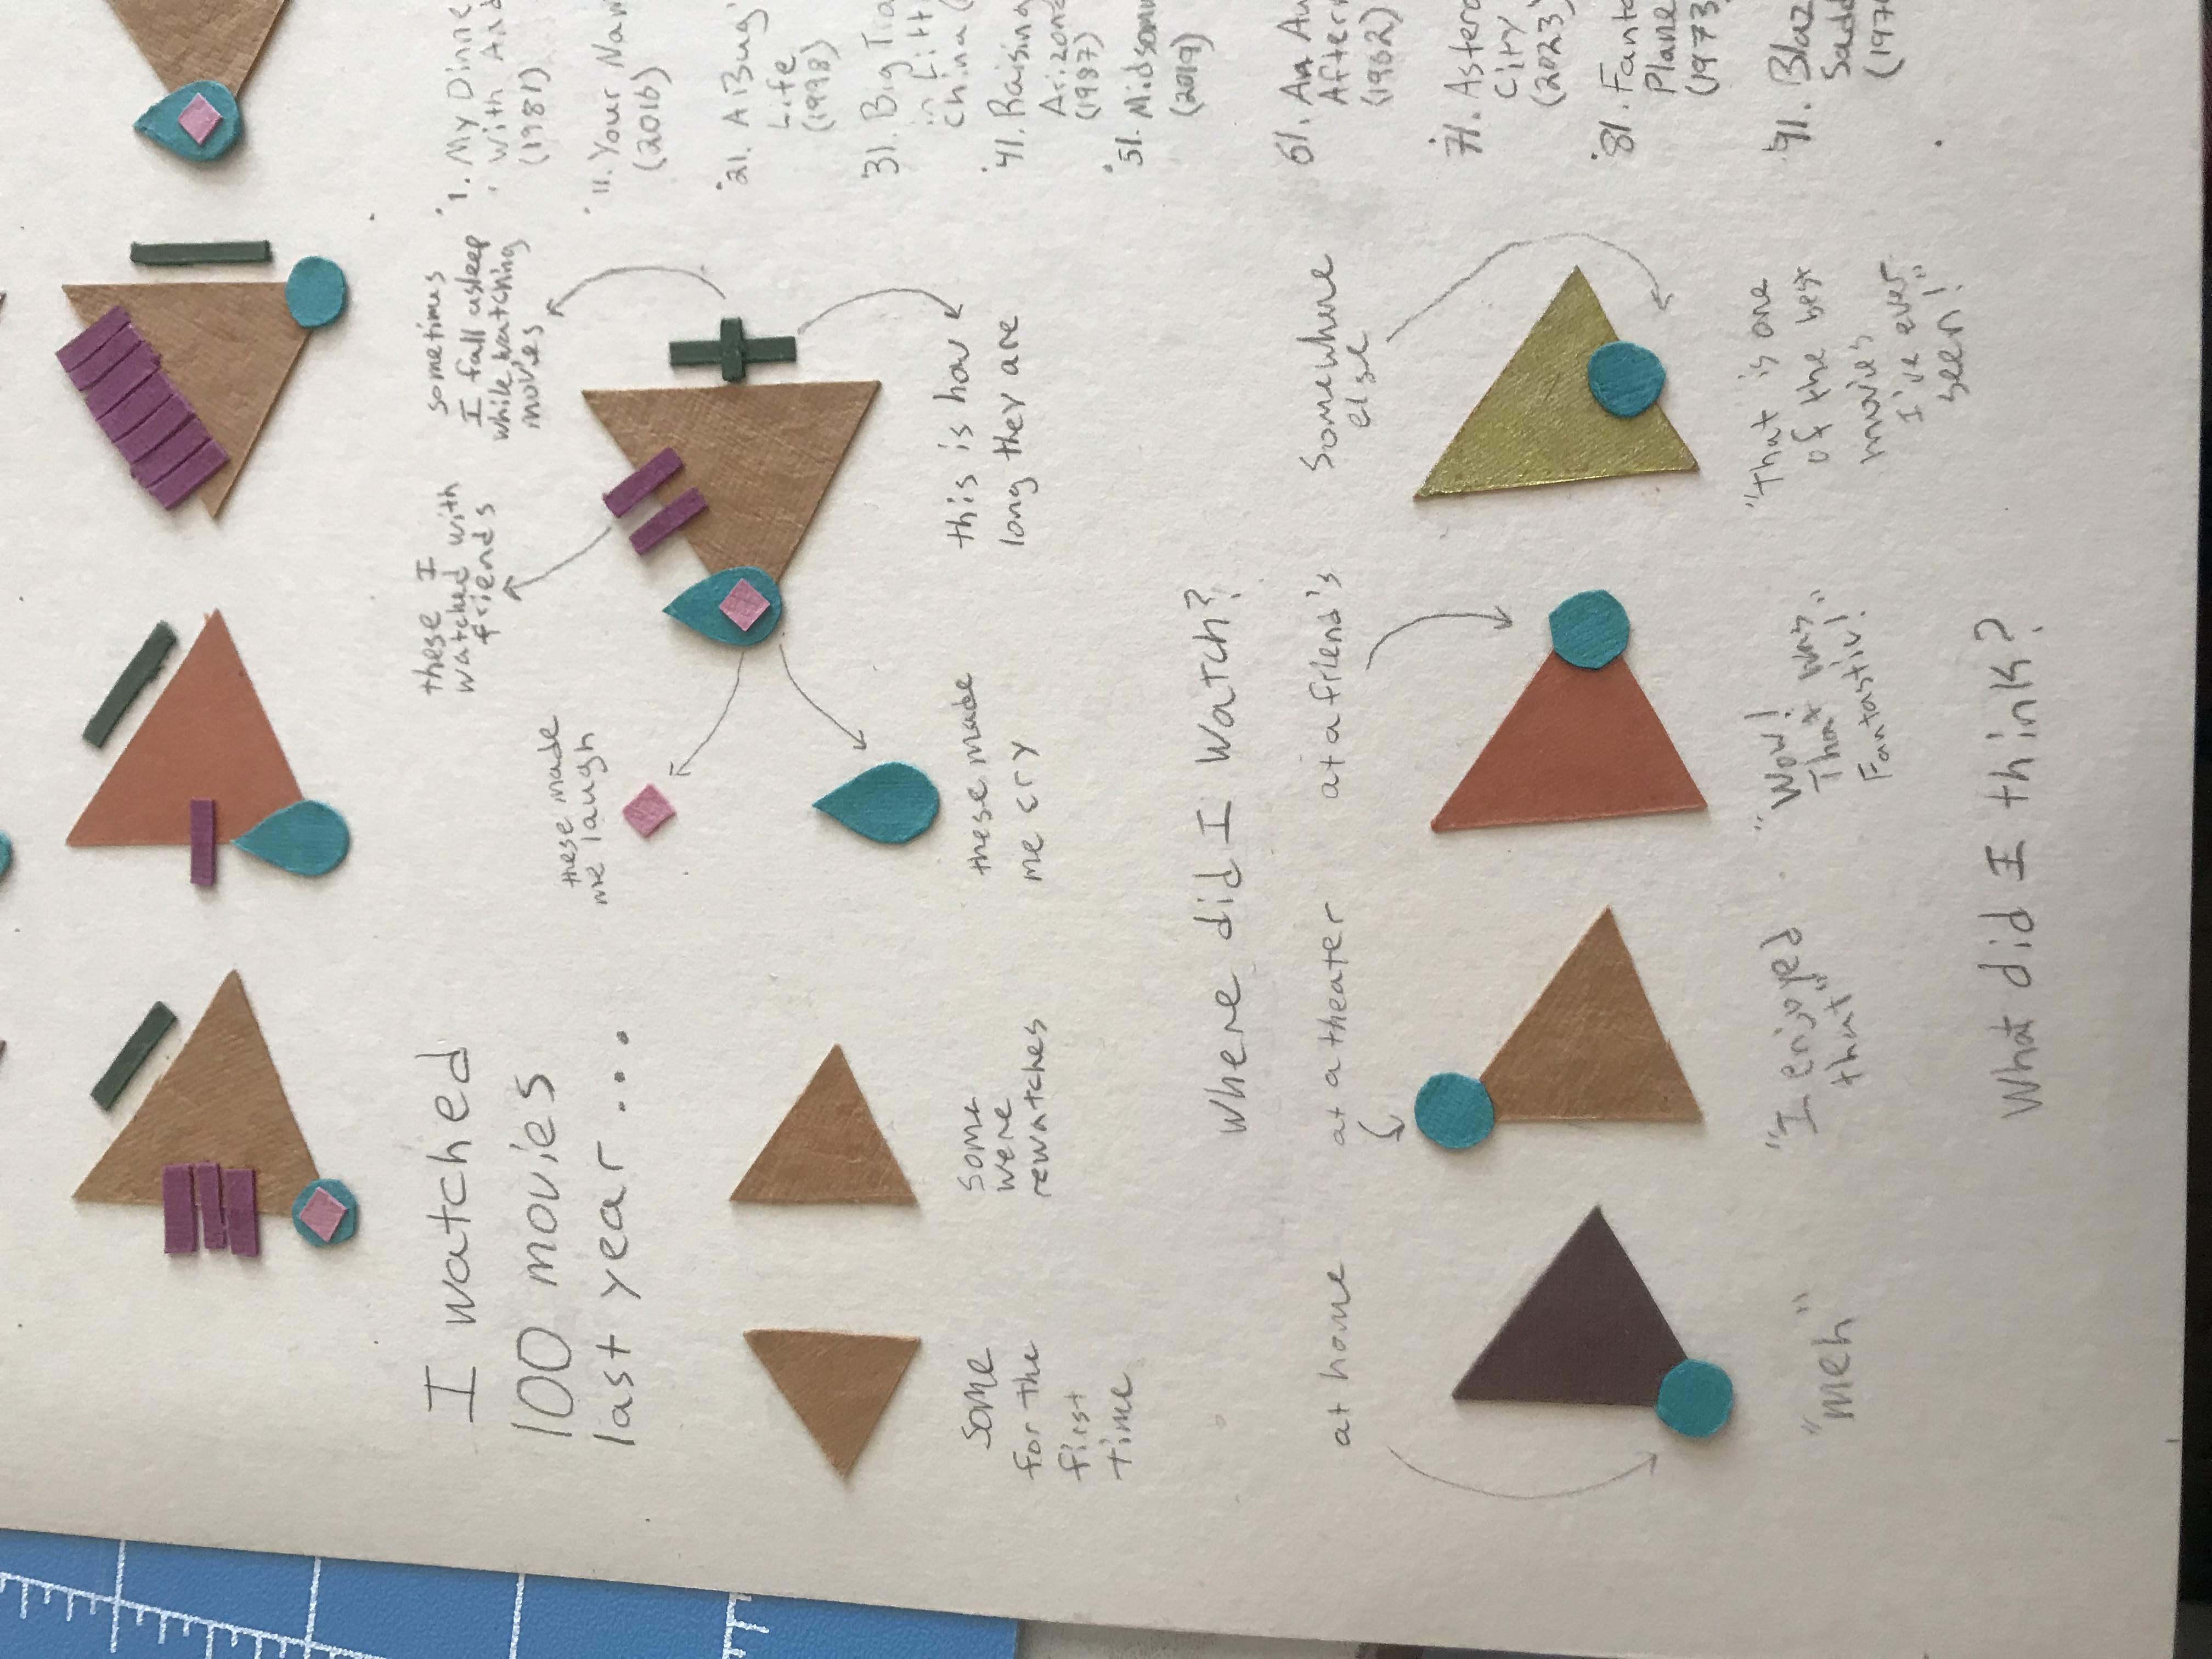 I watched
100 movies
last year ...
these I
watched with
friends
sometimes
I fall asleep
while watching
movies
these made
me laugh
some
for the
first
time
some
were
rewatches
these made
me cry
this is how
long they are
Where did I watch?
at home
at a theater
at a friend's
Somewhere
else
"meh"
"I enjoyed
that"
"Wow!
That was
Fantastic!"
"That is one
of the best
movies
I've ever
seen!"
What did I think?
1. My Dinne
with And
(1981)
11. Your Nam
(2016)
21. A Bug'
Life
(1998)
31. Big Tro
in Litt
China (
41. Raising
Arizona
(1987)
51. Midsomm
(2019)
61. An Au
Aftern
(1962)
71. Astero
City
(2023)
81. Fanta
Plane
(1973
91. Blaz
Sadd
(197